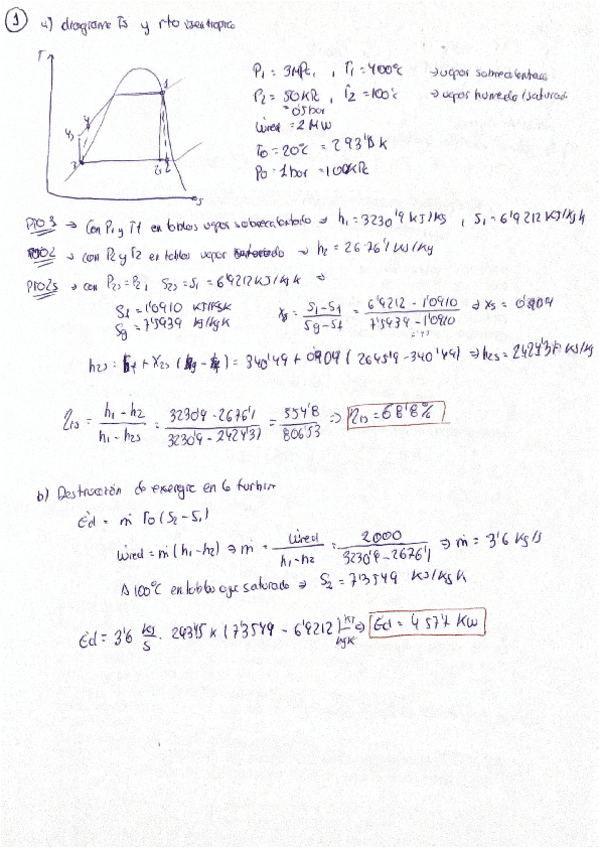 1 a) diagrama Ts y rto isentropico
T
P1 = 3MPa, T1 = 400ºC → vapor sobrecalentado
P2 = 50KPa, T2 = 100ºC → vapor humedo/saturado
= 0'5 bar
Ẇred = 2 MW
T0 = 20ºC = 293'15 K
P0 = 1 bar = 100KPa
1
3
2s 2
s
PTO 3 → Con P1 y T1 en tablas vapor sobrecalentado ⇒ h1 = 3230'9 KJ/Kg, S1 = 6'9212 KJ/Kg K
PTO2 → con P2 y T2 en tablas vapor ⇒ h2 = 2676'1 KJ/Kg
PTO2s → con P2s = P2, S2s = S1 = 6'9212 KJ/Kg K ⇒
Sf = 1'0910 KJ/KgK
Sg = 7'5939 KJ/KgK
xs = S1-Sf / Sg-Sf = 6'9212 - 1'0910 / 7'5939 - 1'0910 ⇒ xs = 0'909
h2s = hf + X2s (hg - hf) = 340'49 + 0'909 (2645'9 - 340'49) ⇒ h2s = 2424'37 KJ/Kg
ηis = h1 - h2 / h1 - h2s = 3230'9 - 2676'1 / 3230'9 - 2424'37 = 554'8 / 806'53 ⇒ ηis = 68'8%
b) Destrucción de exergia en la turbina
Ėd = ṁ T0 (S2 - S1)
Ẇred = ṁ (h1 - h2) ⇒ ṁ = Ẇred / h1 - h2 = 2000 / 3230'9 - 2676'1 ⇒ ṁ = 3'6 Kg/s
A 100ºC en tablas agua saturado ⇒ S2 = 7'3549 KJ/Kg K
Ėd = 3'6 Kg/s · 293'15 × (7'3549 - 6'9212) KJ/KgK ⇒ Ėd = 457'7 KW